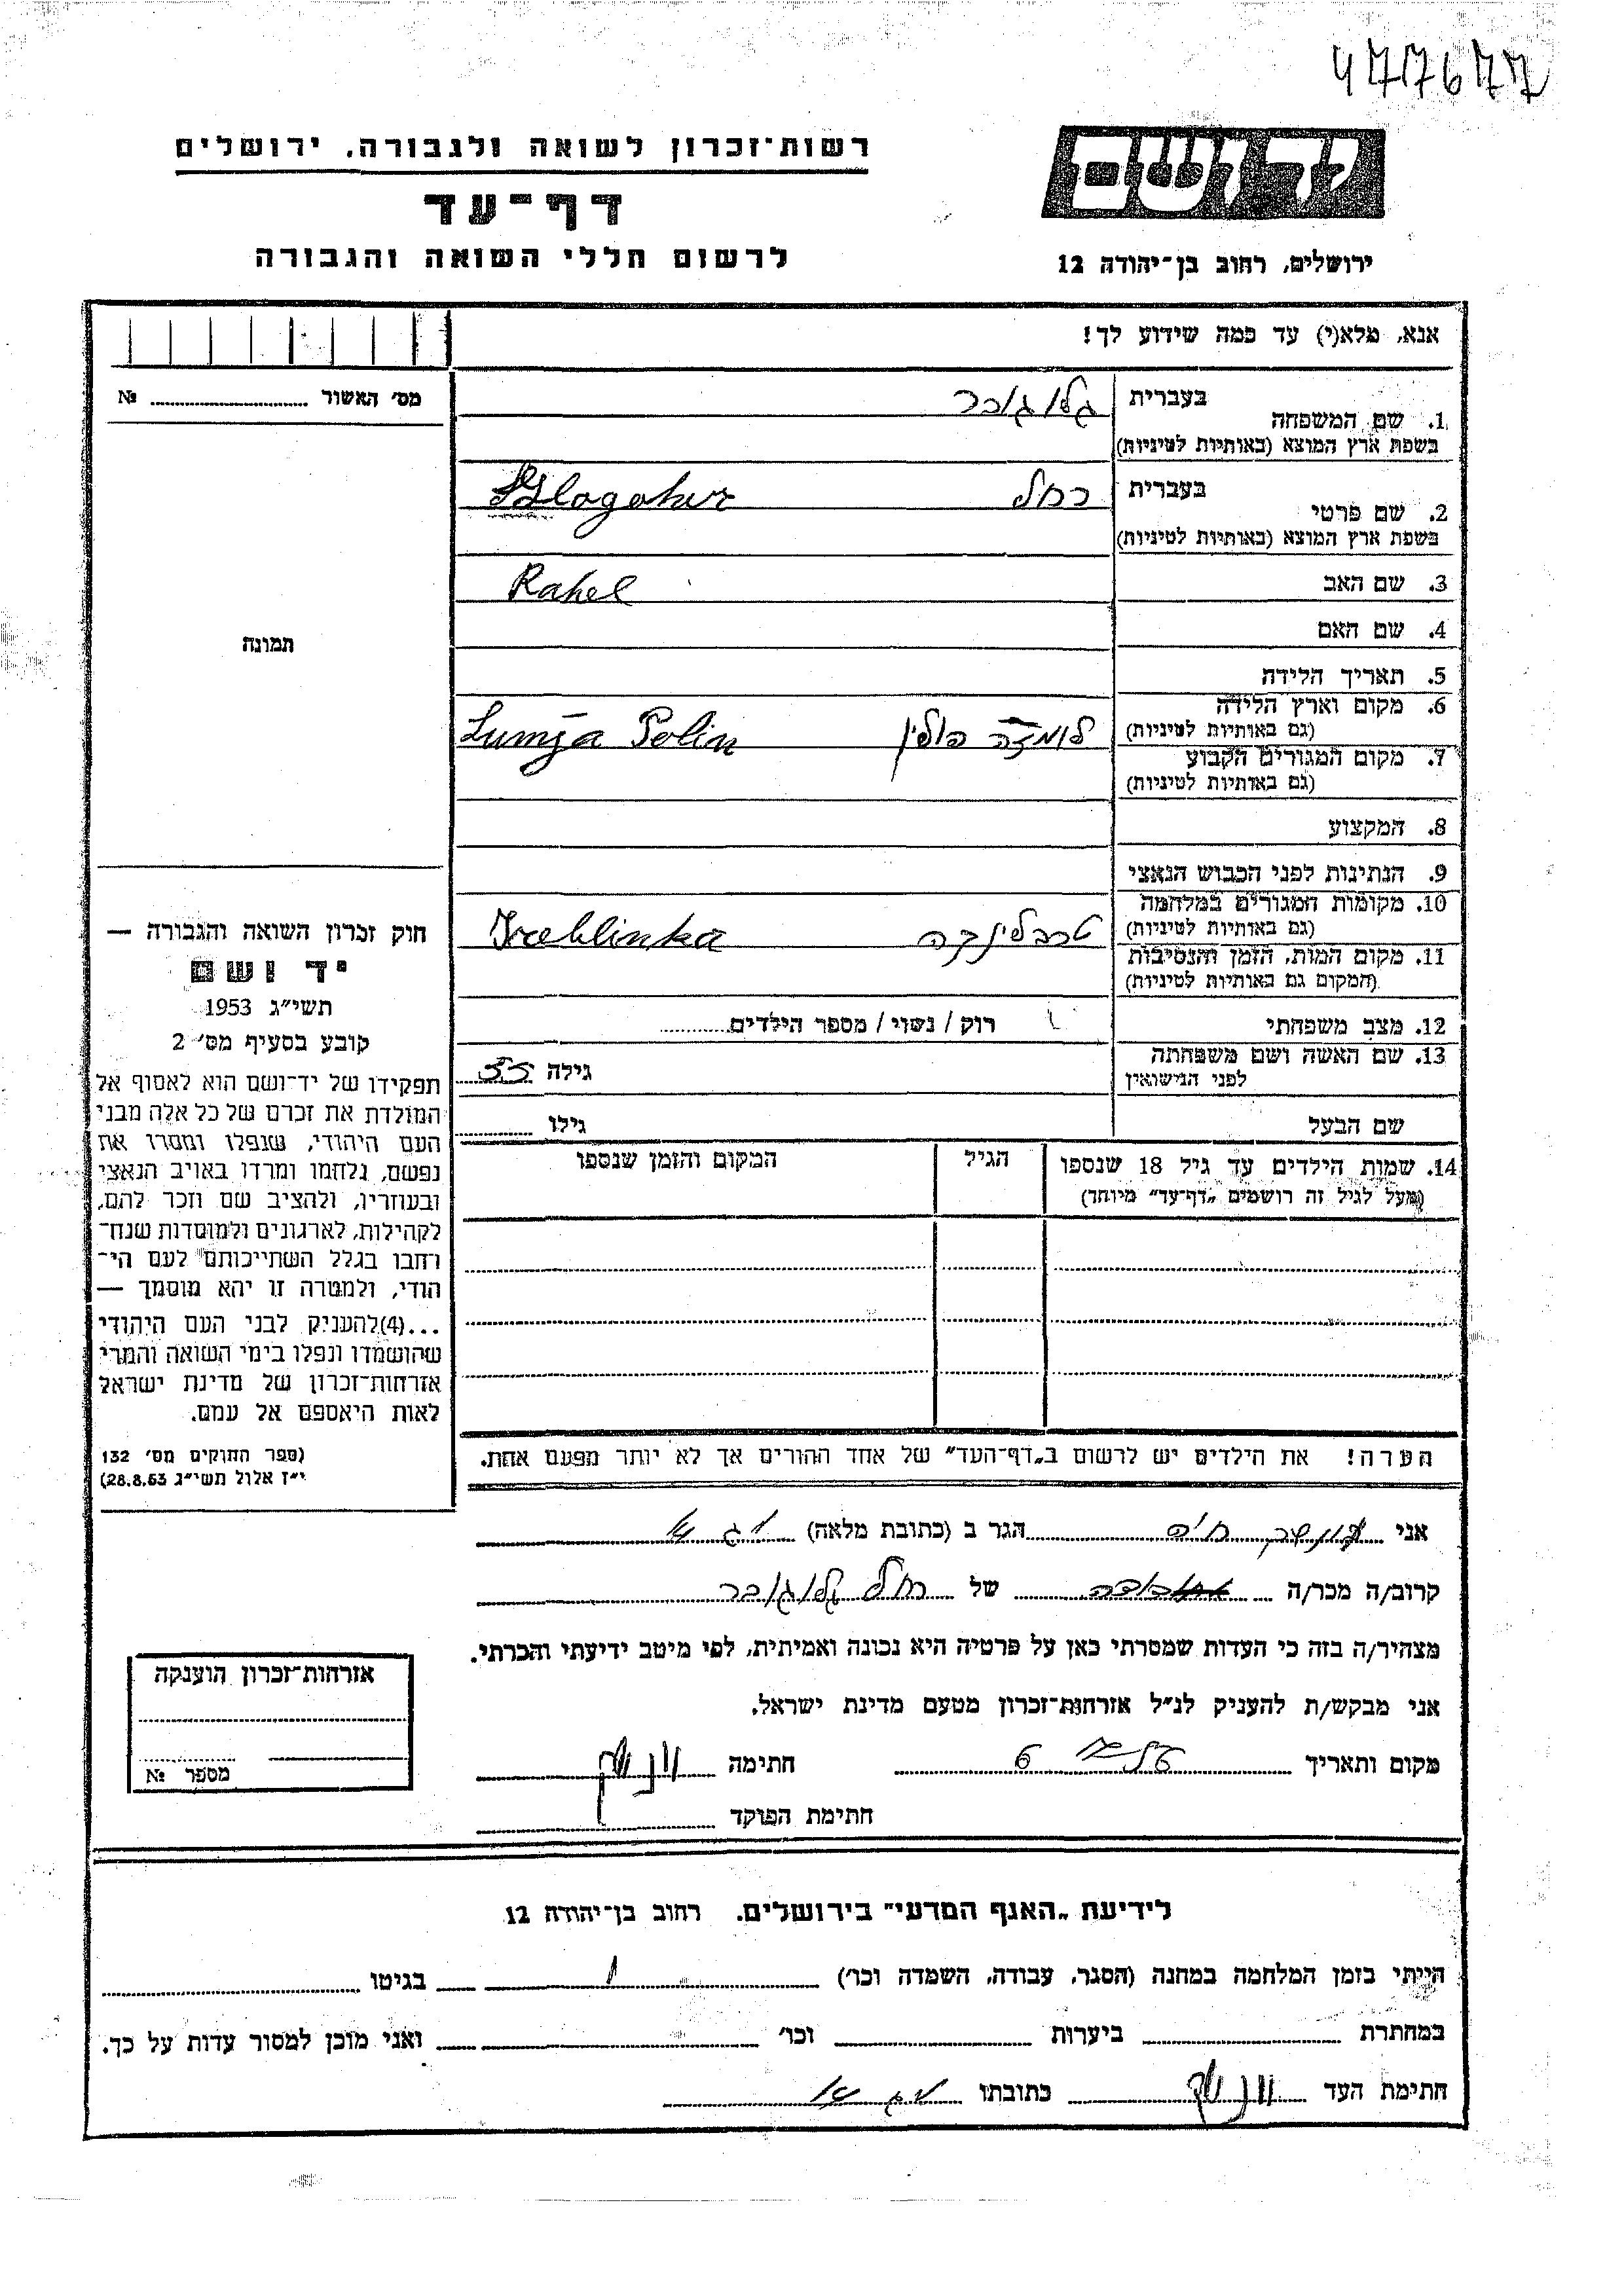 477677
רשות־זכרון לשואה ולגבורה, ירושלים
דף־עד
לרשום חללי השואה והגבורה
ירושלים, רחוב בן־יהודה 12
אנא, מלא(י) עד כמה שידוע לך!
מס׳ האשור №
בעברית
1. שם המשפחה
בשפת ארץ המוצא (באותיות לטיניות)
בעברית רחל
2. שם פרטי
בשפת ארץ המוצא (באותיות לטיניות)
3. שם האב Rahel
4. שם האם
תמונה
5. תאריך הלידה
6. מקום וארץ הלידה
(גם באותיות לטיניות) לומזה פולין Lumza Polin
7. מקום המגורים הקבוע
(גם באותיות לטיניות)
8. המקצוע
9. הנתינות לפני הכבוש הנאצי
10. מקומות המגורים במלחמה
(גם באותיות לטיניות) טרבלינקה Treblinka
11. מקום המות, הזמן והנסיבות
(המקום גם באותיות לטיניות)
12. מצב משפחתי רוק / נשוי / מספר הילדים
13. שם האשה ושם משפחתה
לפני הנישואין גילה 55
שם הבעל גילו
14. שמות הילדים עד גיל 18 שנספו הגיל המקום והזמן שנספו
(מעל לגיל זה רושמים „דף־עד” מיוחד)
הערה! את הילדים יש לרשום ב„דף־העד” של אחד ההורים אך לא יותר מפעם אחת.
חוק זכרון השואה והגבורה —
יד ושם
תשי״ג 1953
קובע בסעיף מס׳ 2
תפקידו של יד־ושם הוא לאסוף אל
המולדת את זכרם של כל אלה מבני
העם היהודי, שנפלו ומסרו את
נפשם, נלחמו ומרדו באויב הנאצי
ובעוזריו, ולהציב שם וזכר להם,
לקהילות, לארגונים ולמוסדות שנח־
רבו בגלל השתייכותם לעם הי־
הודי, ולמטרה זו יהא מוסמך —
...(4)להעניק לבני העם היהודי
שהושמדו ונפלו בימי השואה והמרי
אזרחות־זכרון של מדינת ישראל
לאות היאספם אל עמם.
(ספר החוקים מס׳ 132
י״ז אלול תשי״ג 28.8.53)
אני חיה הגר ב (כתובת מלאה)
קרוב/ה מכר/ה של רחל
מצהיר/ה בזה כי העדות שמסרתי כאן על פרטיה היא נכונה ואמיתית, לפי מיטב ידיעתי והכרתי.
אני מבקש/ת להעניק לנ״ל אזרחות־זכרון מטעם מדינת ישראל.
מקום ותאריך חתימה
חתימת הפוקד
אזרחות־זכרון הוענקה
מספר №
לידיעת „האגף המדעי” בירושלים. רחוב בן־יהודה 12
הייתי בזמן המלחמה במחנה (הסגר, עבודה, השמדה וכו׳) בגיטו
במחתרת ביערות וכו׳ ואני מוכן למסור עדות על כך.
חתימת העד כתובתו